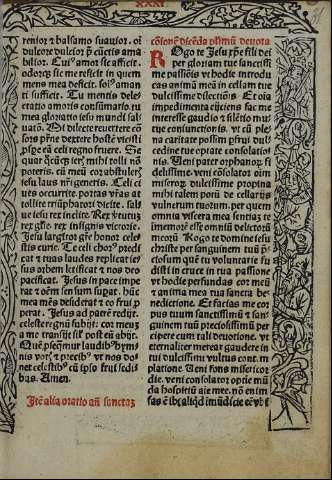 XXXI
trenior & balsamo suauior. o
dulcore dulcior p̄ cūctis ama
bilior. Cui⁹ amor sic afficit.
odorq̄ sic me reficit in quem
mens mea deficit. sol⁹ aman
ti sufficit. Tu mentis dele-
ctatio amoris consumatio. tu
mea gloriatio iesu mundi sal
uatio. Mi dilecte reuertere cō
sors pr̄ne dextere hostē vicisti
p̄spere iā celi regno fruere. Se
quar q̄cūq̄ ieris mihi tolli nō
poteris. cū meū cor abstuleris
iesu laus nr̄i generis. Celi ci
ues occurrite portas vr̄as at
tollite triūphatori dicite. sal
ue iesu rex inclite. Rex v̄tutū
rex glīe. rex insignis victorie.
Jesu largitor glē honor cele-
stis curie. Te celi chor⁹ predi
cat & tuas laudes replicat ie-
sus orbem letificat & nos deo
pacificat. Jesus in pace impe
rat q̄ oēm sensum supat. hūc
mea mēs desiderat & eo frui p̄
perat. Jesus ad patrē redijt.
celeste regnū subijt: cor meuȝ a
me transijt sil' post eū abijt.
Quē p̄sequimur laudibꝰ hym
nis
net celestibꝰ cū ipso frui sedi
bus. Amen.
Itē alia oratio an̄ sanctaȝ
cōionē dicēda pl'imū deuota
ROgo te Jesu xp̄e fili dei
per gloriam tue sanctissi
me passiōis vt hodie introdu
cas animā meā in cellam tue
dulcissime dilectiōis Et oīa
impedimenta eijciens fac me
interesse gaudio & silētio mul
tue coniunctionis. vt cū ple-
na caritate possim p̄frui dul-
cedine tue optate consolatio
nis. Veni pater orphanorȝ fi
delissime. veni cōsolator oīm
miserorȝ. dulcissime propina
mihi talem potū de cellarijs
vulnerum tuorum. per quem
omnia viscera mea sentiāt te
memorē esse omniū delictorū
meorū Rogo te domine iesu
christe per sanguinem tuū p̄-
ciosum quē tu voluntarie fu
disti in cruce in tua passione
vt hodie perfundas cor meū
& anima mea tua sancta be
nedictione. Et facias me cor
pus tuum sanctissimū & san
guinem tuū preciosissimū per
cipere cum tali deuotione. vt
eternaliter merear gaudere in
tui dulcissimi vultus cont̄-
platione Veni fons misericor
die. veni consolator optie mū
da hospitiū aīe mee. nō enim